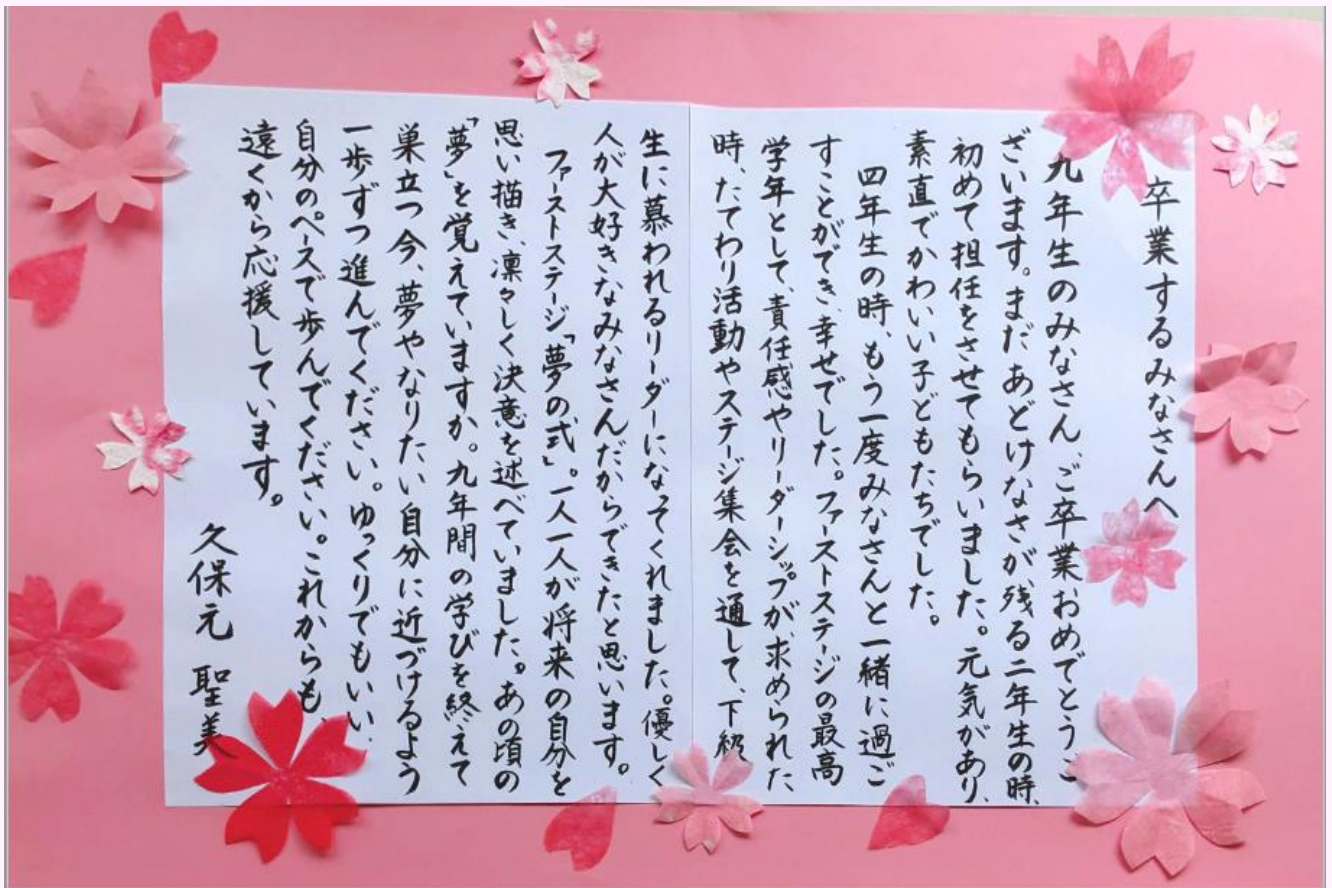 卒業するみなさんへ
九年生のみなさん、ご卒業おめでとうご
ざいます。まだあどけなさが残る二年生の時、
初めて担任をさせてもらいました。元気があり、
素直でかわいい子どもたちでした。
四年生の時、もう一度みなさんと一緒に過ご
すことができ、幸せでした。ファーストステージの最高
学年として、責任感やリーダーシップが、求められた
時、たてわり活動やステージ集会を通して、下級
生に慕われるリーダーになってくれました。優しく
人が大好きなみなさんだからできたと思います。
ファーストステージ「夢の式」。一人一人が将来の自分を
思い描き、凛々しく決意を述べていました。あの頃の
「夢」を覚えていますか。九年間の学びを終えて
巣立つ今、夢やなりたい自分に近づけるよう
一歩ずつ進んでください。ゆっくりでもいい、
自分のペースで歩んでください。これからも、
遠くから応援しています。
久保元 聖美